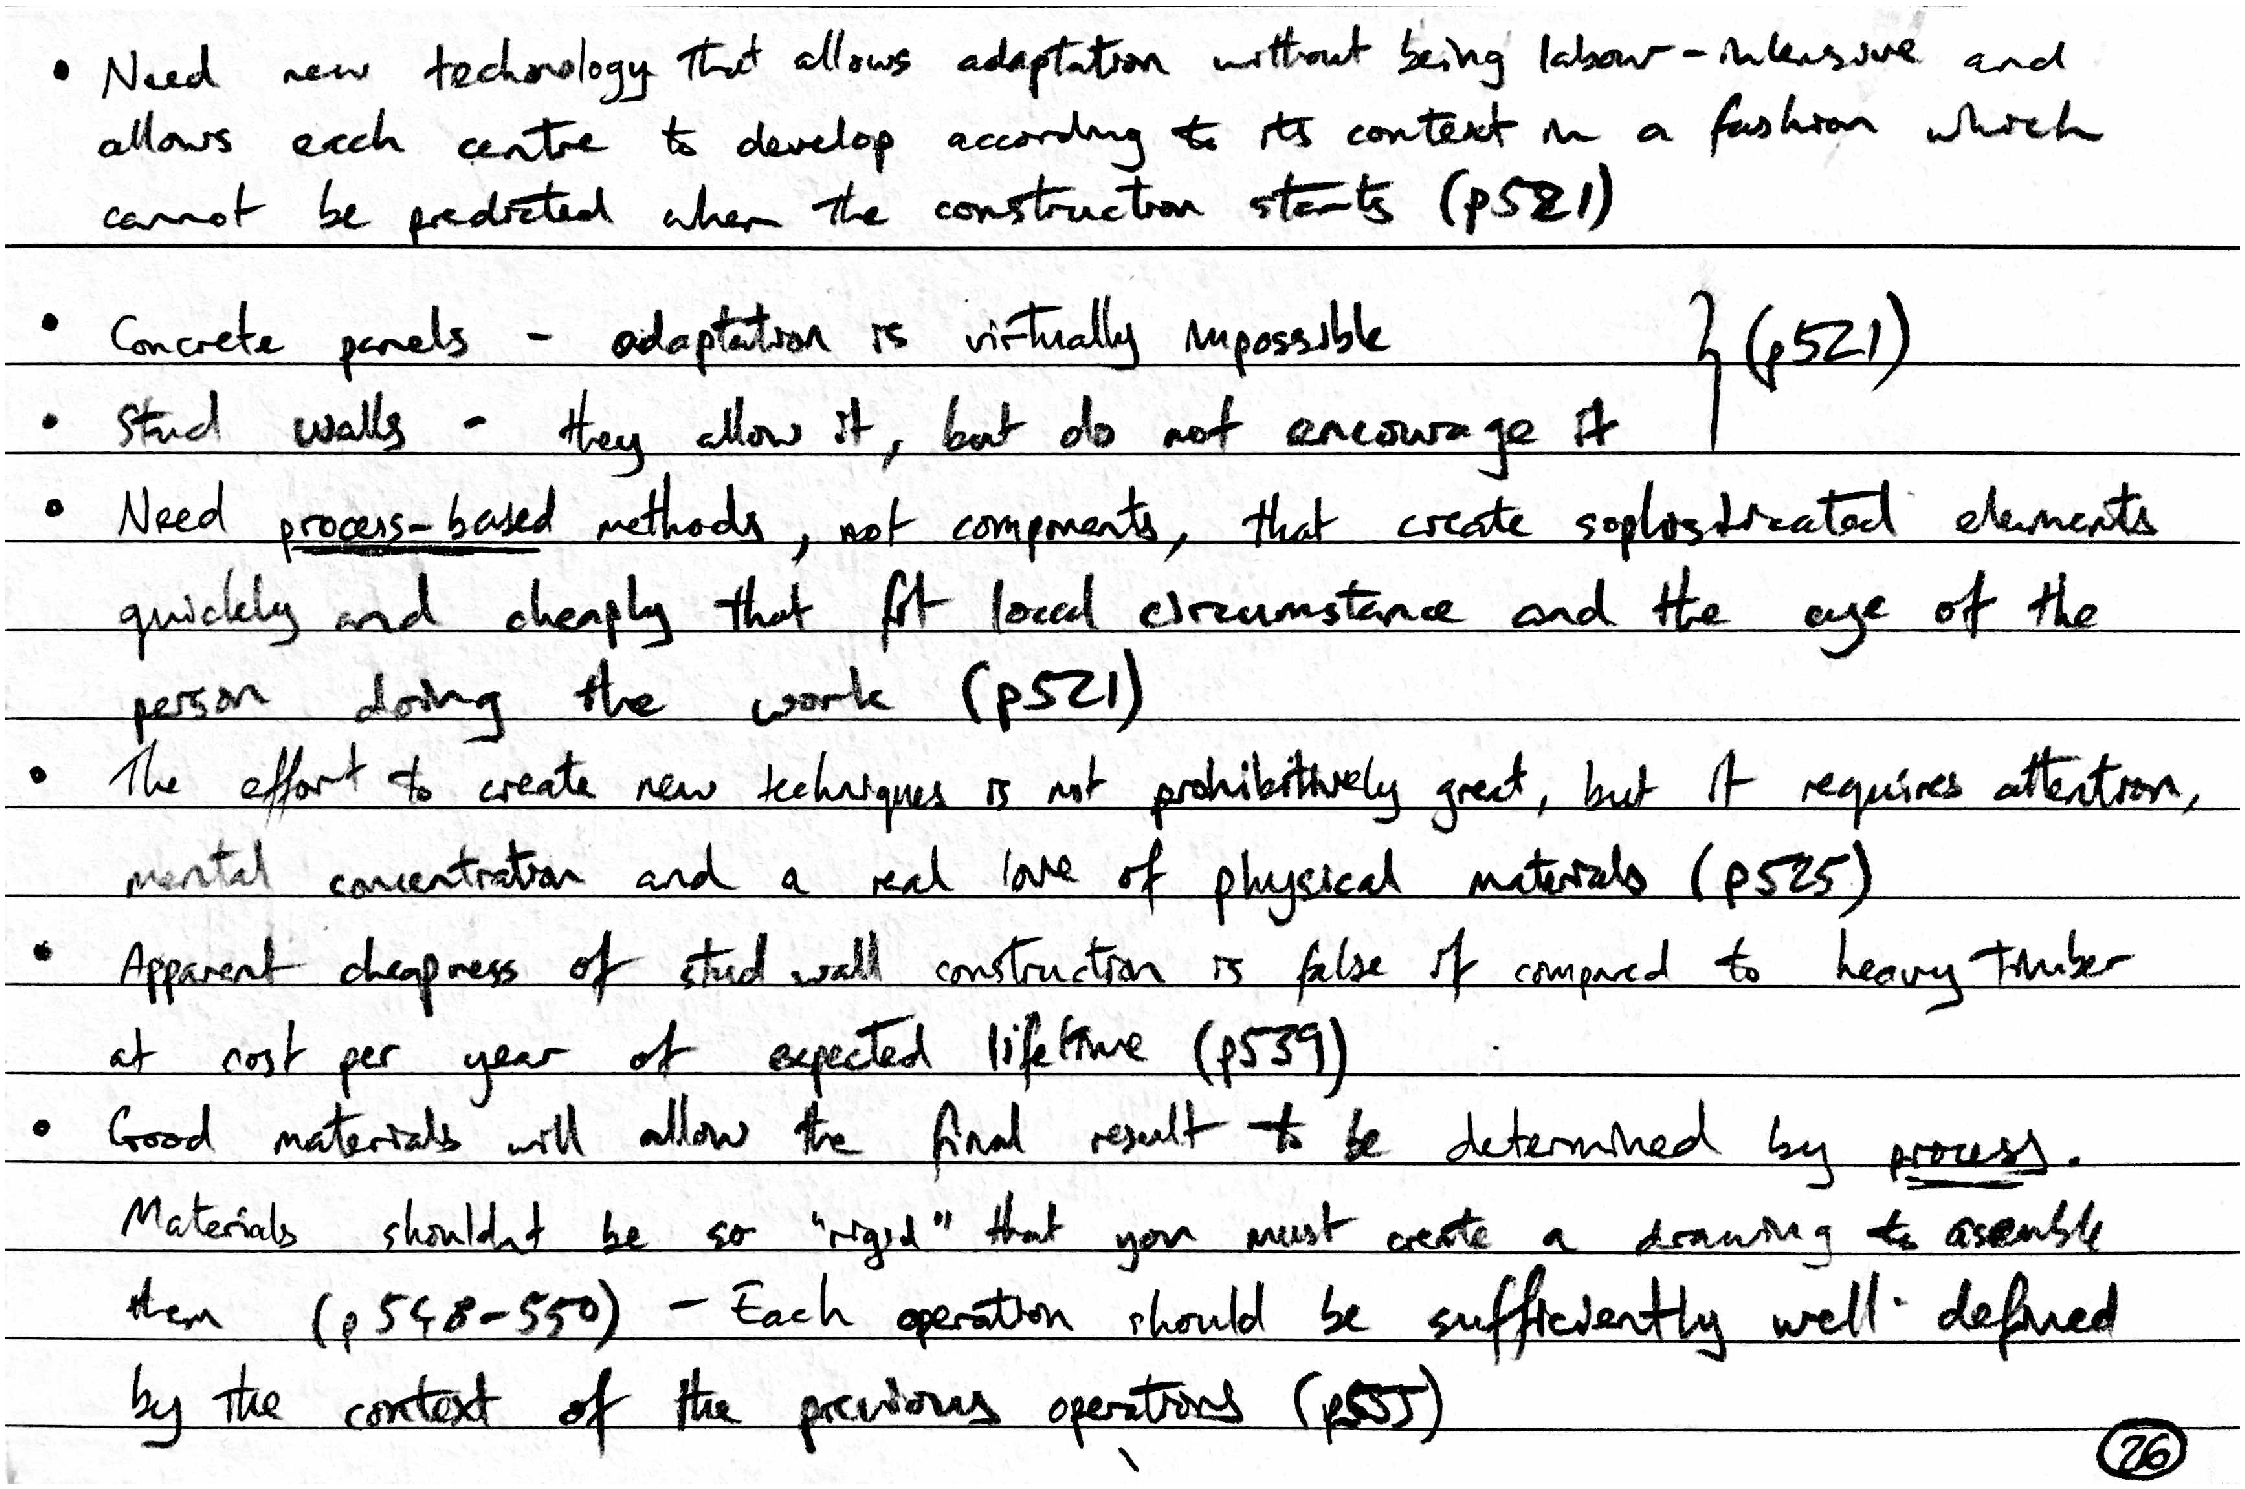 • Need new technology that allows adaptation without being labour-intensive and
allows each centre to develop according to its context in a fashion which
cannot be predicted when the construction starts (p521)
• Concrete panels - adaptation is virtually impossible } (p521)
• Stud walls - they allow it, but do not encourage it
• Need process-based methods, not components, that create sophisticated elements
quickly and cheaply that fit local circumstance and the eye of the
person doing the work (p521)
• The effort to create new techniques is not prohibitively great, but it requires attention,
mental concentration and a real love of physical materials (p525)
• Apparent cheapness of stud wall construction is false if compared to heavy timber
at cost per year of expected lifetime (p539)
• Good materials will allow the final result to be determined by process.
Materials shouldnt be so "rigid" that you must create a drawing to assemble
them (p548-550) - Each operation should be sufficiently well-defined
by the context of the previous operations (p555)
26